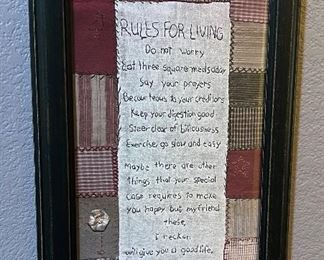 RULES FOR LIVING
Do not worry
Eat three square meals a day
Say your prayers
Be courteous to your creditors
Keep your digestion good
Steer clear of biliousness
Exercise, go slow and easy
maybe there are other
things that your special
case requires to make
you happy but my friend
these,
i reckon
will give you a good life.